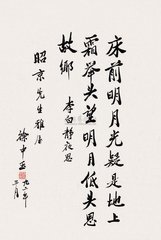 床前明月光疑是地上
霜举头望明月低头思
故乡 李白静夜思
昭京先生雅正
徐中玉